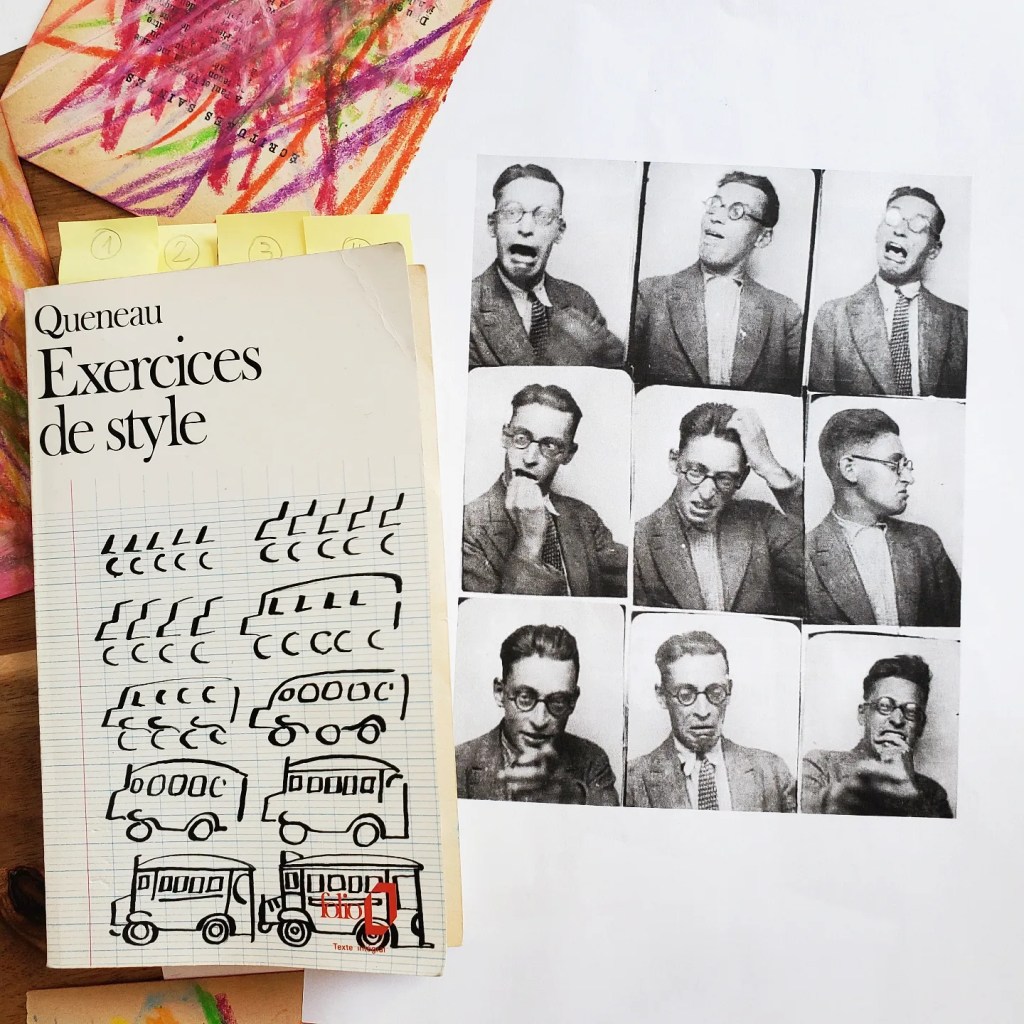 ÉCRITURES SAINTES
1
2
3
4
Queneau
Exercices
de style
folio
Texte intégral